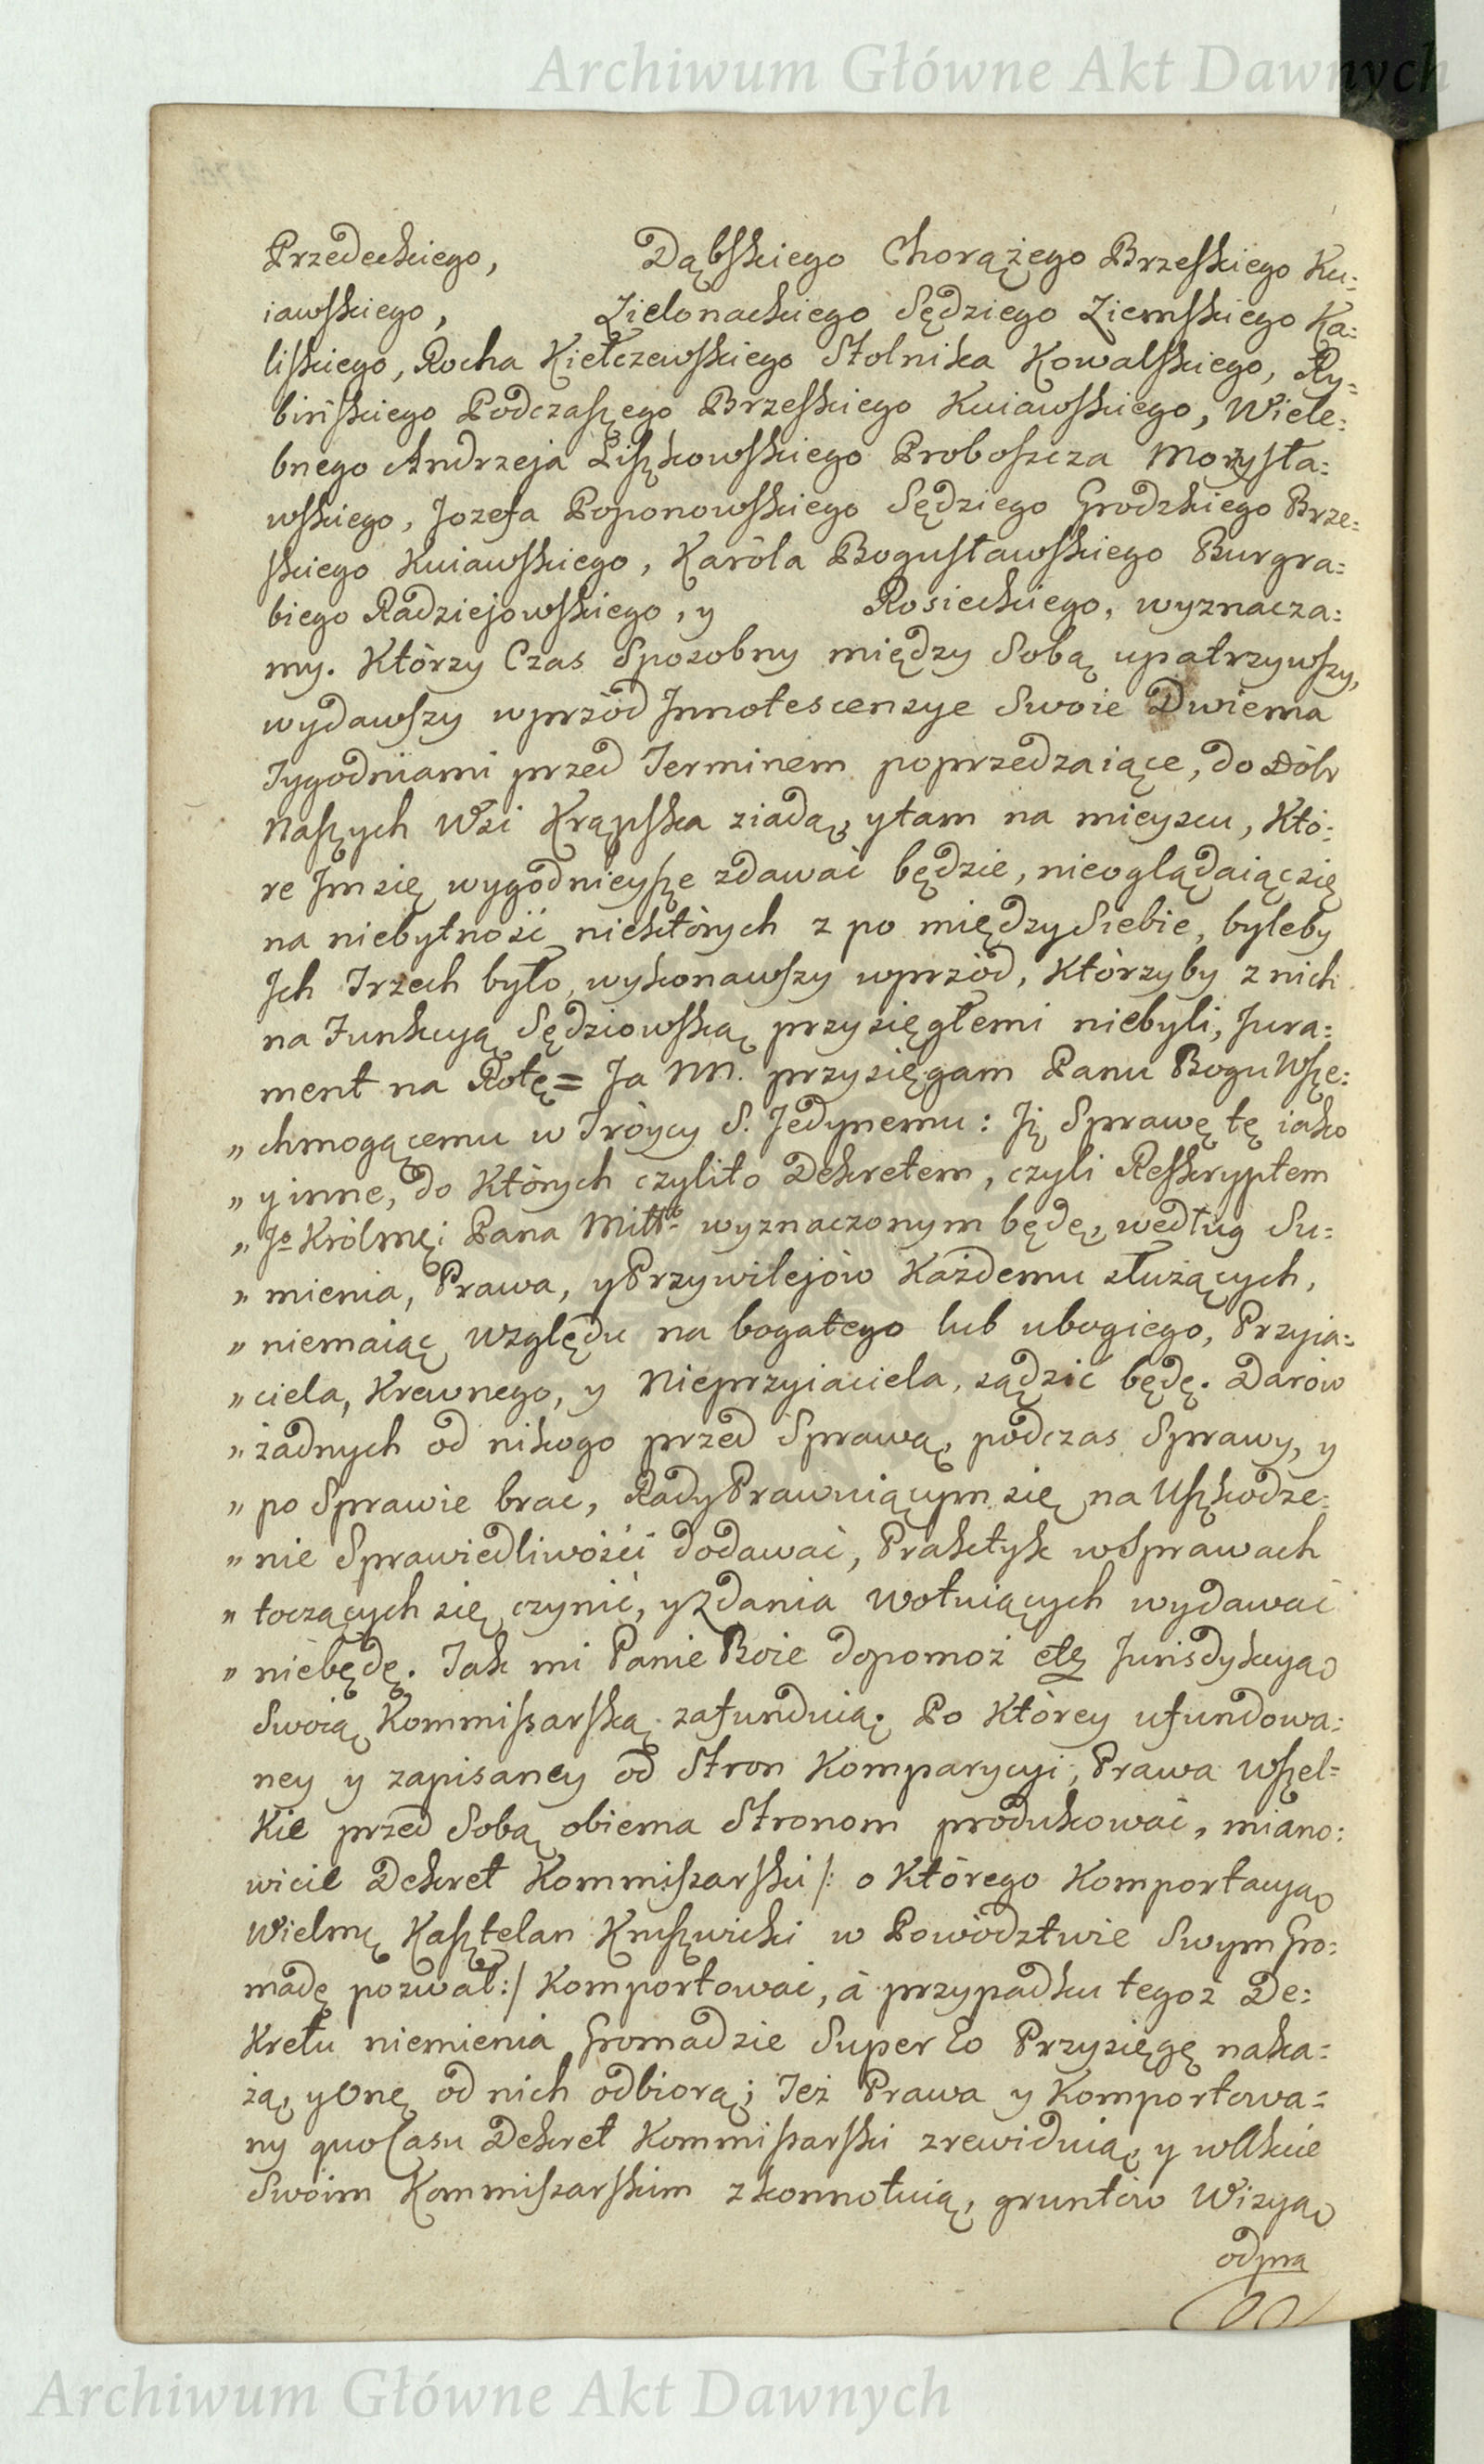 Archiwum Główne Akt Dawnych
Przedeckiego, Dąbskiego Chorążego Brzeskiego Ku:
iawskiego, Zielonackiego Sędziego Ziemskiego Ka:
liskiego, Rocha Kiełczewskiego Stolnika Kowalskiego, Ry:
bińskiego Podczaszego Brzeskiego Kuiawskiego, Wiele:
bnego Andrzeja Liszkowskiego Proboszcza Morzysła:
wskiego, Jozefa Poponowskiego Sędziego Grodzkiego Brze:
skiego Kuiawskiego, Karòla Bogusławskiego Burgra:
biego Radziejowskiego, y Rosieckiego, wyznacza:
my. Którzy Czas Sposobny między Sobą upatrzywszy,
wydawszy wprzód Jnnotescensye Swoie Dwiema
Tygodniami przed Terminem poprzedzaiące, do Dóbr
Naszych Wsi Krąpska ziadą, y tam na mieyscu, Któ:
re Jm się wygodnieysze zdawać będzie, nieoglądaiąc się
na niebytność niektórych z po między Siebie, byleby
Jch Trzech było, wykonawszy wprzód, Którzyby z nich
na Funkcyą Sędziowską przysięgłemi niebyli, Jura:
ment na Rotę = Ja NN. przysięgam Panu Bogu Wsze:
„ chmogącemu w Tróycy S. Jedynemu: Jż Sprawę tę iako
„ y inne, do Których czylito Dekretem, czyli Reskryptem
„ Jo Królmci Pana Miłło wyznaczonym będę, według Su:
„ mienia, Prawa, y Przywilejów Każdemu służących,
„ niemaiąc względu na bogatego lub ubogiego, Przyia:
„ ciela, Krewnego, y Nieprzyiaciela, sądzić będę. Darów
„ żadnych od nikogo przed Sprawą, podczas Sprawy, y
„ po Sprawie brac, Rady Prawuiącym się na Uszkodze:
„ nie Sprawiedliwości dodawać, Praktyk w Sprawach
„ toczących się czynić, y Zdania wotuiących wydawać
„ niebędę. Tak mi Panie Boże dopomoż etc Jurisdykcyą
Swoią Kommissarską zafunduią. Po Którey ufundowa:
ney y zapisaney od Stron Komparycyi, Prawa wszel=
Kie przed Sobą obiema Stronom produkować, miano:
wicie Dekret Kommissarski /: o Którego Komportacyą
Wielmż Kasztelan Kruszwicki w Powództwie Swym Gro:
madę pozwał :/ Komportować, à przypadku tegoż De:
Kretu niemienia Gromadzie Super Eo Przysięgę naka:
żą, y Onę od nich odbiorą; Też Prawa y Komportowa=
ny quo Casu Dekret Kommissarski zrewiduią, y w Akcie
Swoim Kommissarskim zkonnotuią, gruntów Wizyą
odpra
Archiwum Główne Akt Dawnych